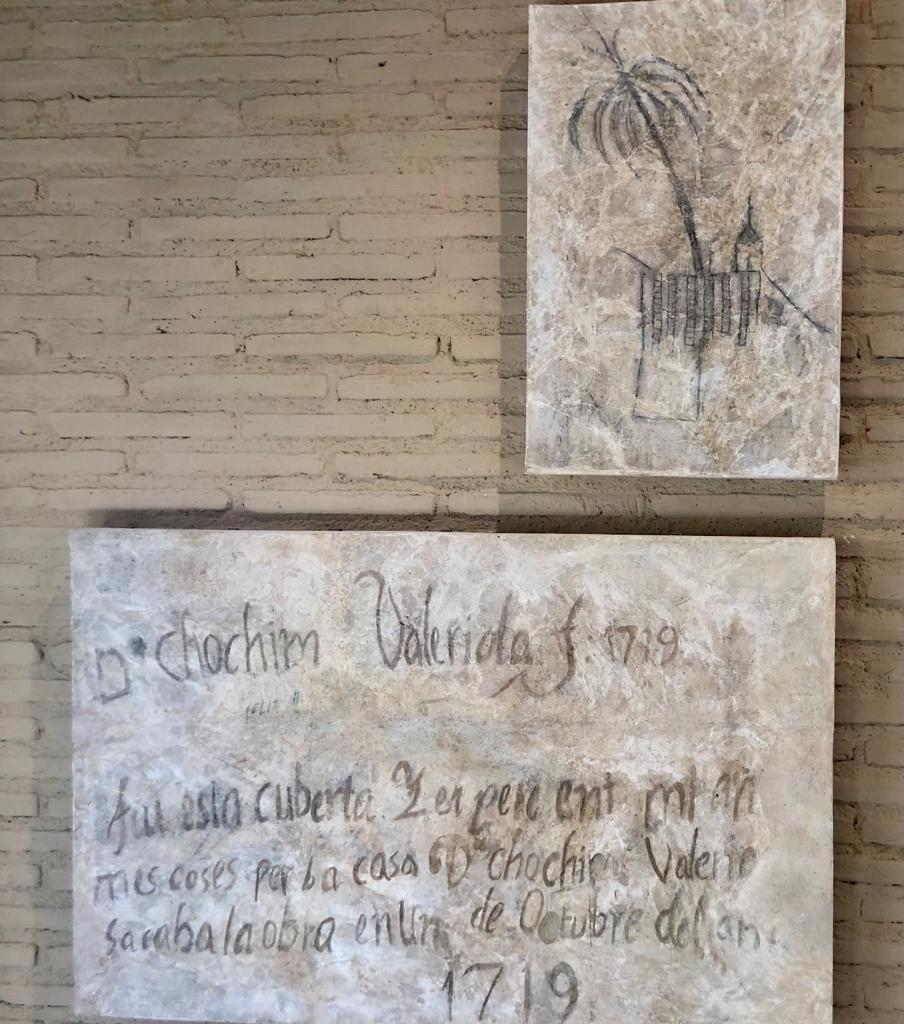 Dª chochim Valeriola f. 1719
esta cuberta
mes coses per la casa Dª chochim
sacaba la obra en un de Octubre del an
1719